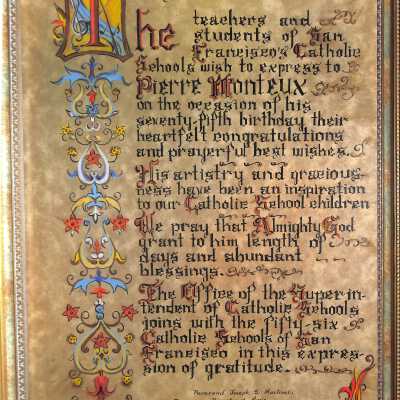 The teachers and
students of San
Francisco's Catholic
Schools wish to express to
Pierre Monteux
on the occasion of his
seventy-fifth birthday their
heartfelt congratulations
and prayerful best wishes.
His artistry and gracious-
ness have been an inspiration
to our Catholic School children
We pray that Almighty God
grant to him length of
days and abundant
blessings.
The Office of the Superin-
tendent of Catholic Schools
joins with the fifty-six
Catholic Schools of San
Francisco in this expres-
sion of gratitude.
Reverend Joseph